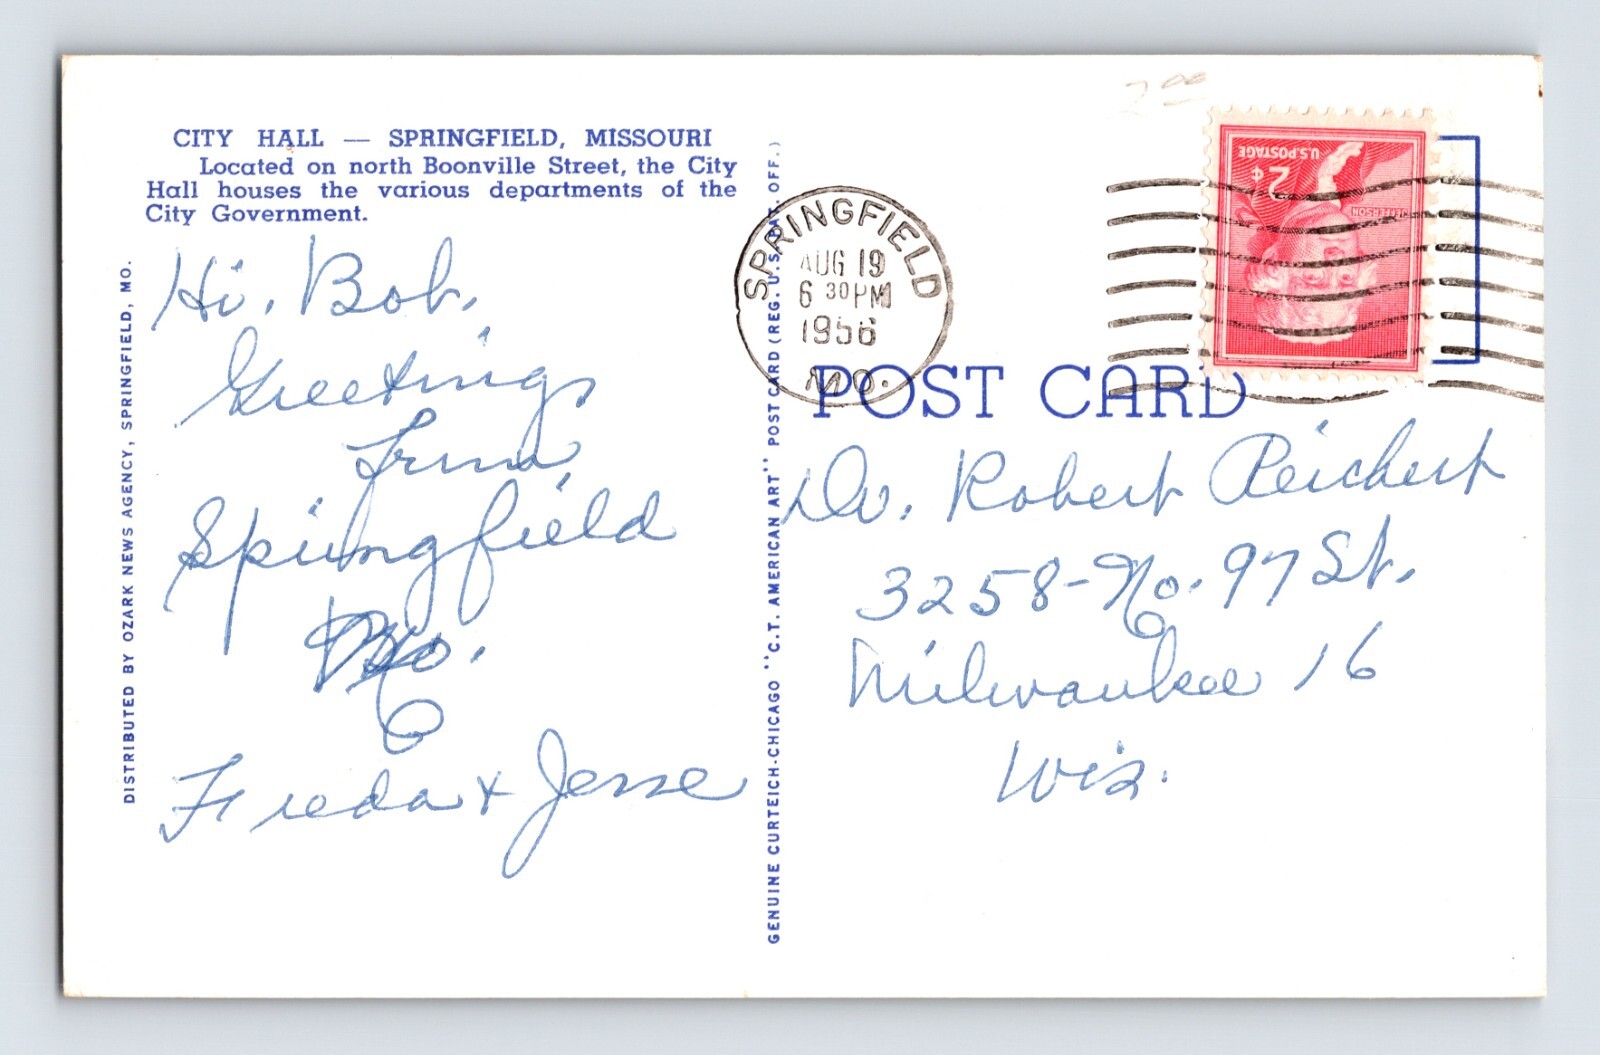 CITY HALL — SPRINGFIELD, MISSOURI
Located on north Boonville Street, the City
Hall houses the various departments of the
City Government.
Hi, Bob,
Greetings
From
Springfield
Mo.
Freda & Jesse
DISTRIBUTED BY OZARK NEWS AGENCY, SPRINGFIELD, MO.
GENUINE CURTEICH-CHICAGO "C.T. AMERICAN ART" POST CARD (REG. U.S. PAT. OFF.)
SPRINGFIELD
AUG 19
6 30 PM
1956
MO.
2 00
U.S. POSTAGE
2¢
JEFFERSON
POST CARD
Dr. Robert Reichert
3258-No. 97 St.
Milwaukee 16
Wis.